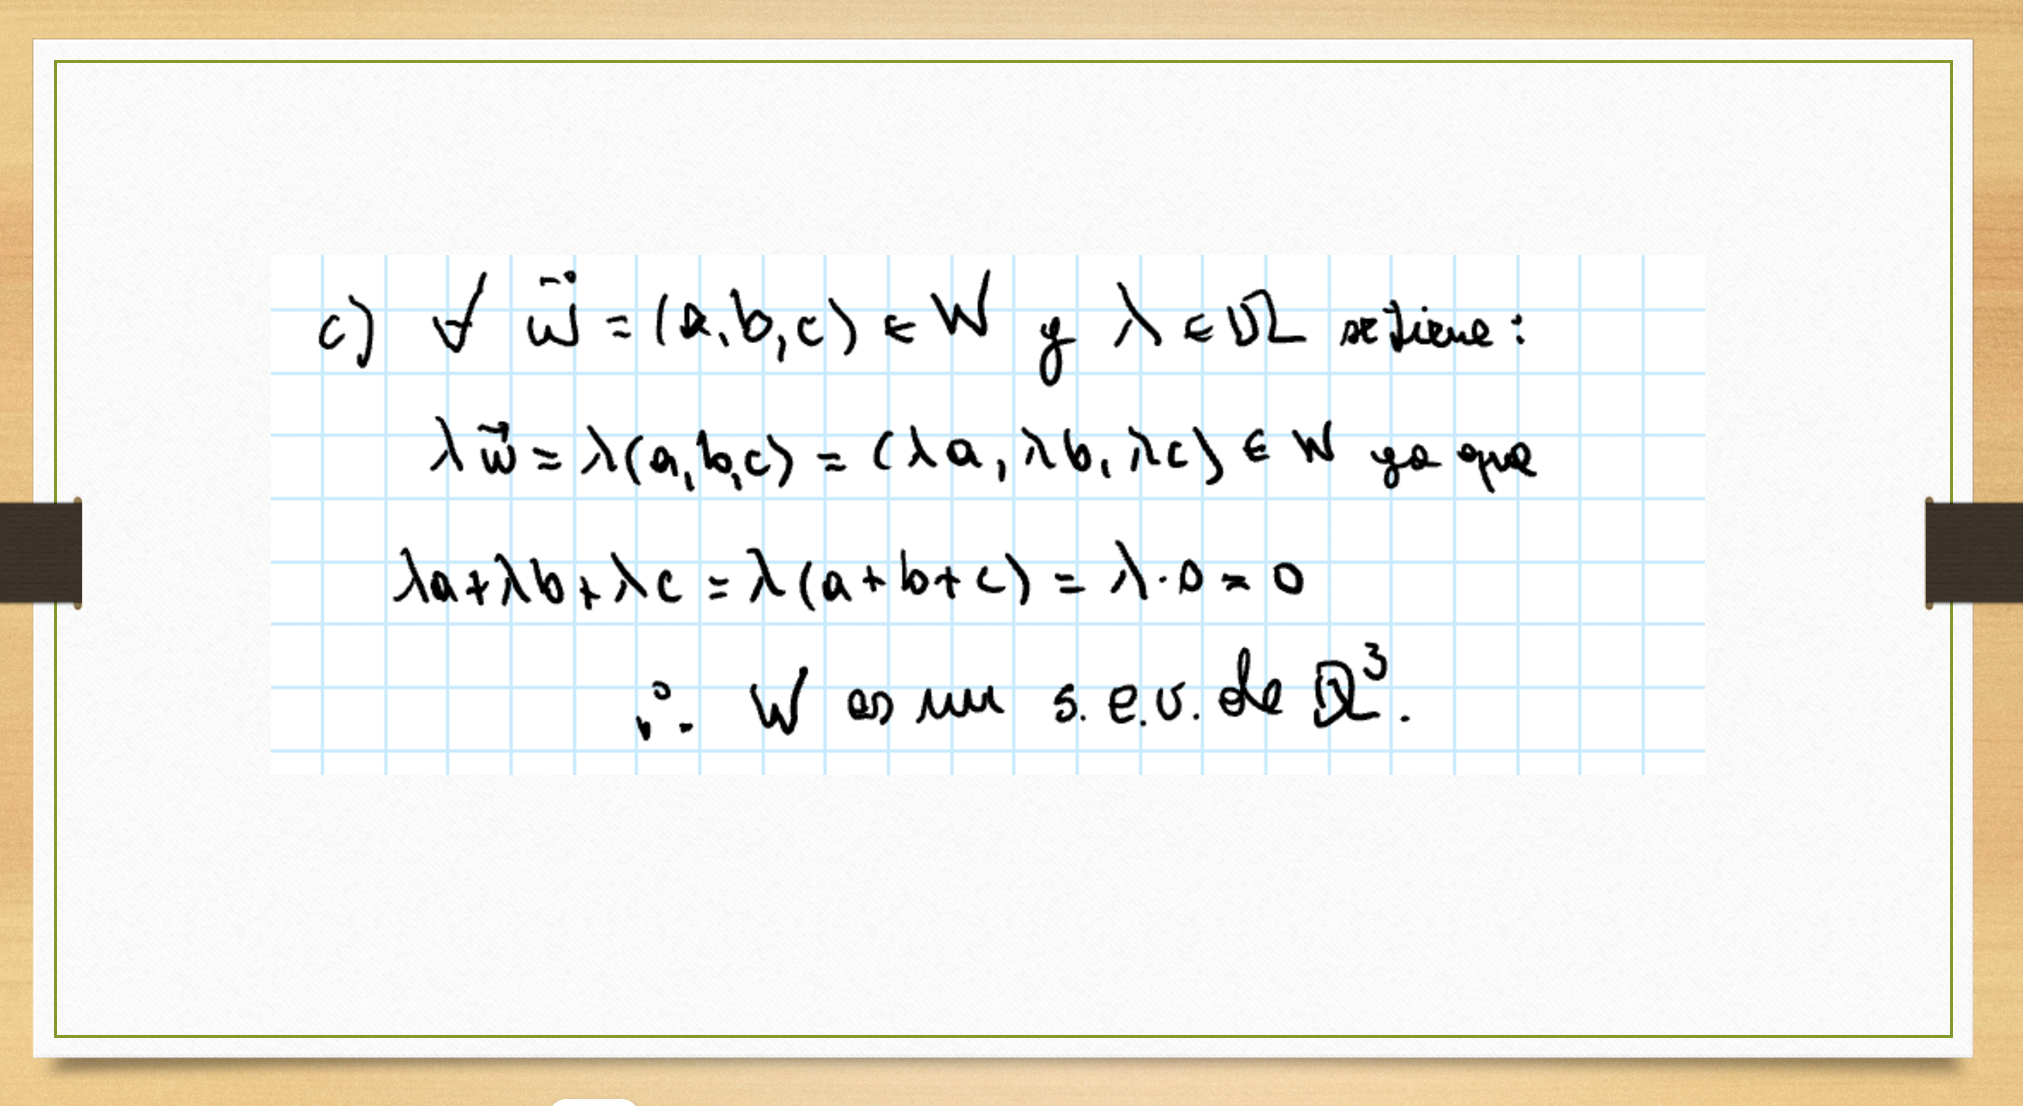 c) ∀ w⃗ = (a, b, c) ∈ W y λ ∈ ℝ se tiene:
λw⃗ = λ(a, b, c) = (λa, λb, λc) ∈ W ya que
λa + λb + λc = λ(a + b + c) = λ · 0 = 0
∴ W es un s.e.v. de ℝ³.